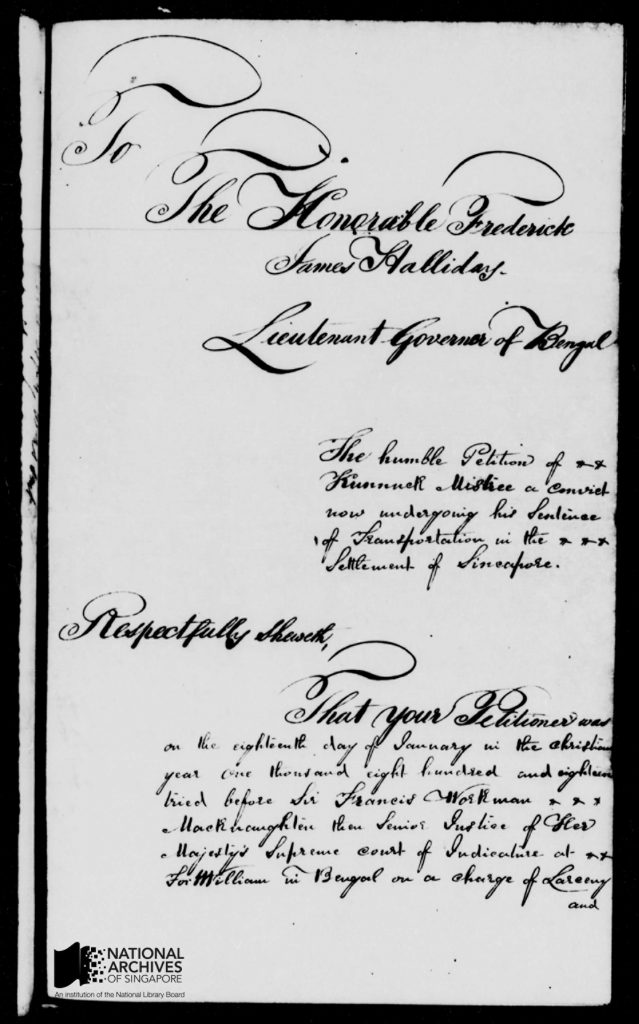 To
The Honorable Frederick
James Halliday.
Lieutenant Governor of Bengal
The humble Petition of * *
Kunnuck Mistree a convict
now undergoing his Sentence
of Transportation in the * * *
Settlement of Sincapore.
Respectfully sheweth,
That your Petitioner was
on the eighteenth day of January in the christian
year one thousand eight hundred and eighteen
tried before Sir Francis Workman * * *
Macknaughten then Senior Justice of Her
Majesty's Supreme court of Judicature at * *
Fort William in Bengal on a charge of Larceny
and
NATIONAL
ARCHIVES
OF SINGAPORE
An institution of the National Library Board